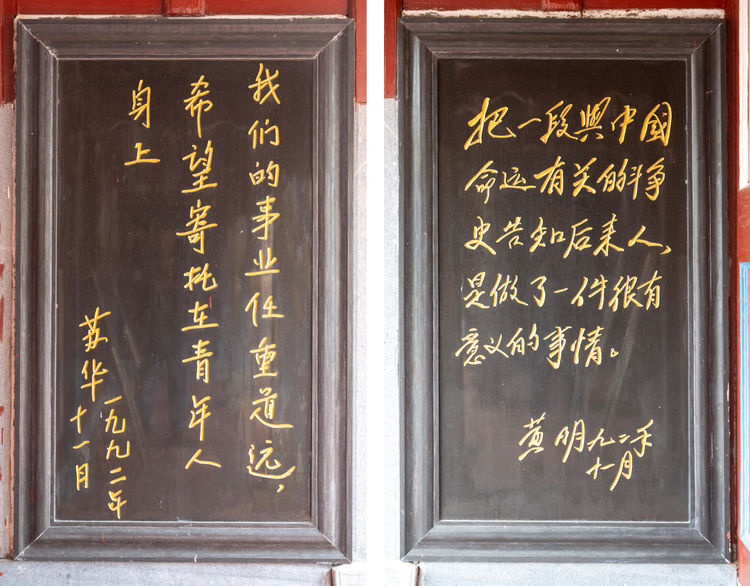 我们的事业任重道远，
希望寄托在青年人
身上
苏华 一九九二年
十一月
把一段與中國
命运有关的斗争
史告知后来人，
是做了一件很有
意义的事情。
黄明 九二年
十一月